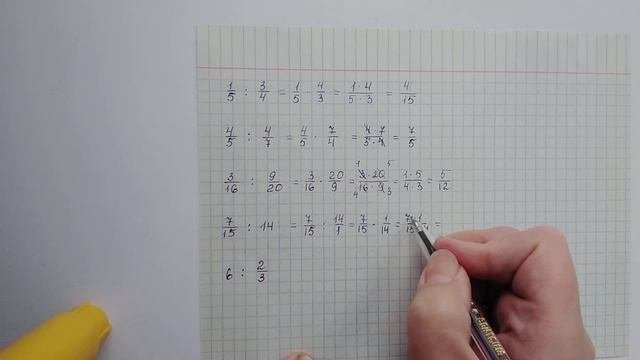 1/5 : 3/4 = 1/5 · 4/3 = 1·4/5·3 = 4/15
4/5 : 4/7 = 4/5 · 7/4 = 4·7/5·4 = 7/5
3/16 : 9/20 = 3/16 · 20/9 = 3·20/16·9 = 1·5/4·3 = 5/12
7/15 : 14 = 7/15 : 14/1 = 7/15 · 1/14 = 7·1/15·14 =
6 : 2/3